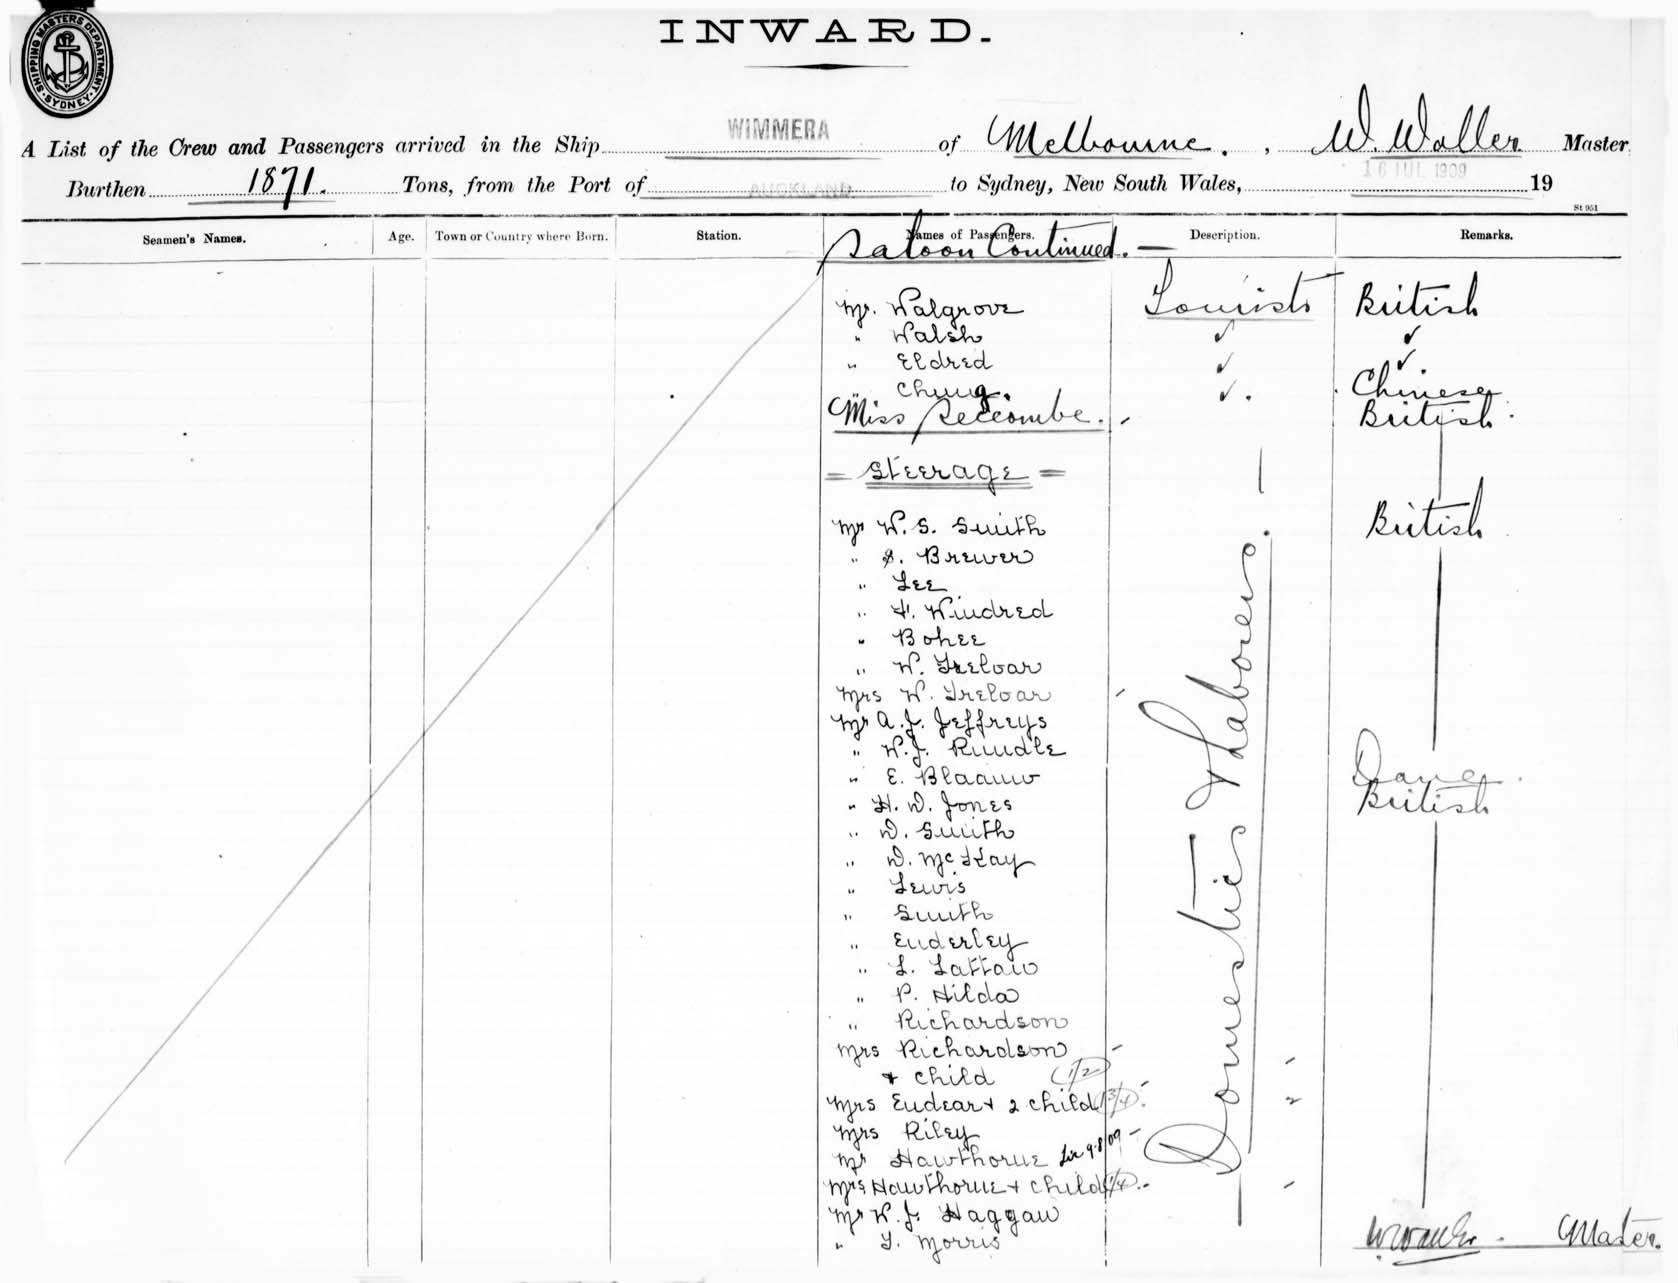 INWARD.
SHIPPING MASTERS DEPARTMENT SYDNEY
A List of the Crew and Passengers arrived in the Ship WIMMERA of Melbourne. , W. Waller Master
Burthen 1871. Tons, from the Port of AUCKLAND to Sydney, New South Wales, 16 JUL 1909 19
St 951
Seamen's Names. Age. Town or Country where Born. Station. Names of Passengers. Description. Remarks.
Saloon Continued. —
Mr. Walgrove Tourists British
" Walsh ✓ ✓
" Eldred ✓ ✓
" Chung. ✓ Chinese
Miss Seccombe. British
= Steerage =
Domestics & Labourers.
Mr W. S. Smith British
" S. Brewer
" Lee
" F. Windred
" Bohee
" W. Treloar
Mrs W. Treloar
Mr A. J. Jeffreys
" W. J. Rundle
" E. Blaauw Dane
" H. D. Jones British
" D. Smith
" D. McKay
" Lewis
" Smith
" Enderley
" L. Lattaw
" P. Hilda
" Richardson
Mrs Richardson
& child (1/2)
Mrs Endear & 2 child 3/4
Mrs Riley
Mr Hawthorne 9.8.09
Mrs Hawthorne & child 1/4
Mr W. J. Haggaw
" T. Morris
Master.